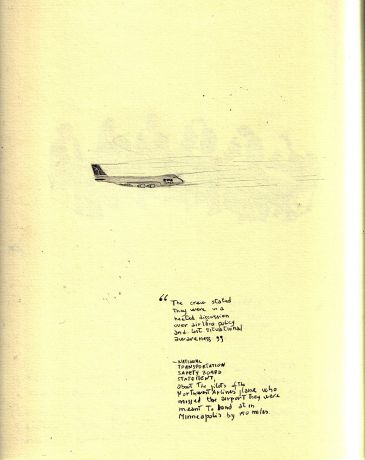 “ The crew stated
they were in a
heated discussion
over airline policy
and lost situational
awareness ”
— NATIONAL
TRANSPORTATION
SAFETY BOARD
STATEMENT,
about the pilots of the
Northwest Airlines plane who
missed the airport they were
meant to land at in
Minneapolis by 150 miles.